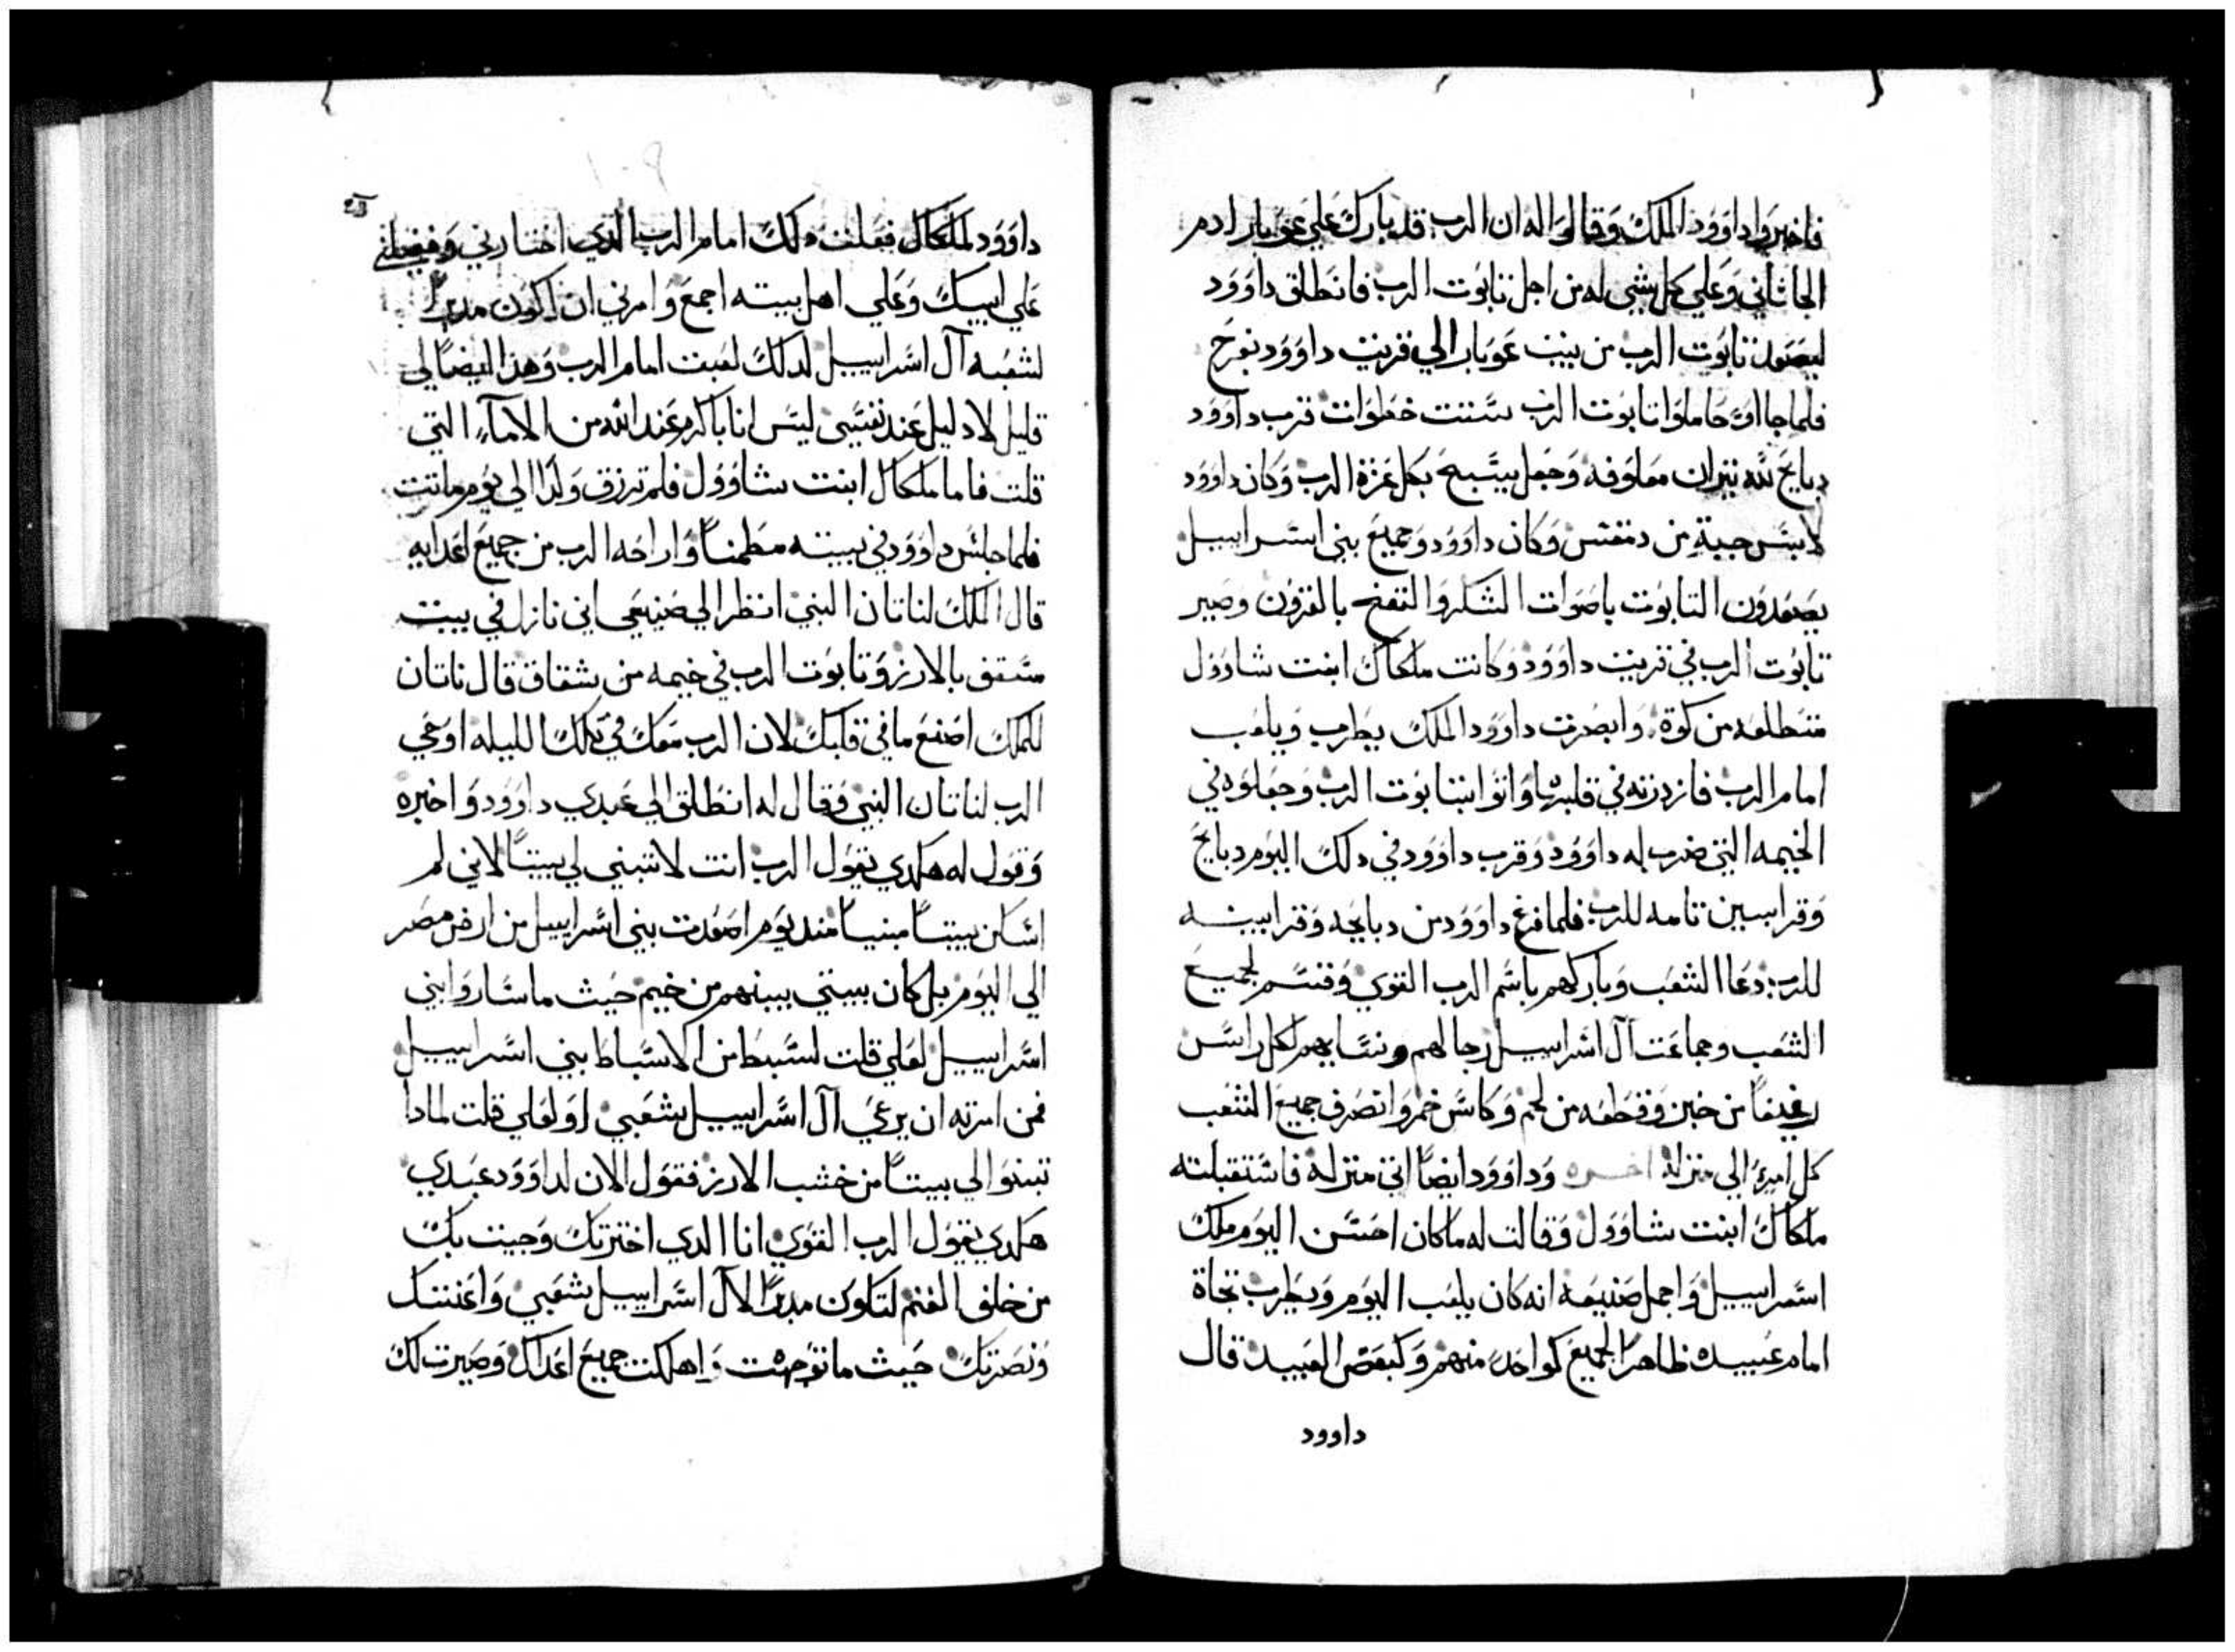 فاخبروا داوود الملك وقالوا له ان الرب قد بارك علي عوبار ادم
الجاثاني وعلي كل شي له من اجل تابوت الرب فانطلق داوود
ليصعد تابوت الرب من بيت عوبار الي قريت داوود بفرح
فلما جااوا حاملوا تابوت الرب ستت خطوات قرب داوود
دبايح لله تيران معلوفه وجعل يسبح بكل عزة الرب وكان داوود
لابس جبة من دمقس وكان داوود وجميع بني اسراييل
يصعدون التابوت باصوات الشكر والنفخ بالقرون وصير
تابوت الرب في قريت داوود وكانت ملكال ابنت شاوول
متطلعه من كوة وابصرت داوود الملك يطرب ويلعب
امام الرب فازدرته في قلبها واتوا بتابوت الرب وجعلوه في
الخيمه التي ضرب له داوود وقرب داوود في دلك اليوم دبايح
وقرابين تامه للرب فلما فرغ داوود من دبايحه وقرابينه
للرب دعا الشعب وباركهم باسم الرب القوي وقسم لجميع
الشعب وجماعت آل اسراييل رجالهم ونسايهم لكل راس
رغيفا من خبز وقطعه من لحم وكاس خمر وانصرف جميع الشعب
كل امرئ الي منزله وداوود ايضا اتي منزله فاستقبلته
ملكال ابنت شاوول وقالت له ماكان احسن اليوم ملك
اسراييل واجمل صنيعه انه كان يلعب اليوم ويطرب تجاة
امام عبيده ظاهرا لجميع كواحد منهم وكبعض العبيد قال
داوود
داوود لملكال فعلت دلك امام الرب الدي اختارني وفضلني
علي ابيك وعلي اهل بيته اجمع وامرني ان اكون مدبرا
لشعبه آل اسراييل لدلك لعبت امام الرب وهذا ايضا لي
قليل لا دليل عند نفسي ليس انا باكرم عند الله من الامآء التي
قلت فاما ملكال ابنت شاوول فلم ترزق ولدا الي يوم ماتت
فلما جلس داوود في بيته مطمنا واراحه الرب من جميع اعدايه
قال الملك لناتان النبي انظر الي صنيعي اني نازل في بيت
مسقف بالارز وتابوت الرب في خيمه من شقاق قال ناتان
للملك اصنع ما في قلبك لان الرب معك في تلك الليله اوحي
الرب لناتان النبي وقال له انطلق الي عبدي داوود واخبره
وقول له هكدي يقول الرب انت لا تبني لي بيتا لاني لم
اسكن بيتا مبنيا مند يوم اصعدت بني اسراييل من ارض مصر
الي اليوم بل كان بيتي بينهم من خيم حيث ما ساروا بني
اسراييل لعلي قلت لسبط من الاسباط بني اسراييل
فمن امرته ان يرعي آل اسراييل شعبي او لعلي قلت لمادا
تبنوا لي بيتا من خشب الارز فقول الان لداوود عبدي
هكدي يقول الرب القوي انا الدي اخترتك وجيت بك
من خلف الغنم لتكون مدبرا لآل اسراييل شعبي واعنتك
ونصرتك حيث ما توجهت واهلكت جميع اعداك وصيرت لك